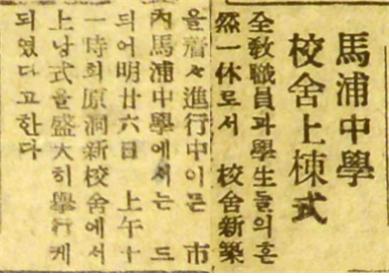 馬浦中學
校舍上棟式
全敎職員과學生들의혼
然一休로서 校舍新築
을着々進行中이든 市
內馬浦中學에서는 드
듸어明廿六日 上午十
一時회原洞新校舍에서
上낭式을盛大히擧行게
되엿다고한다